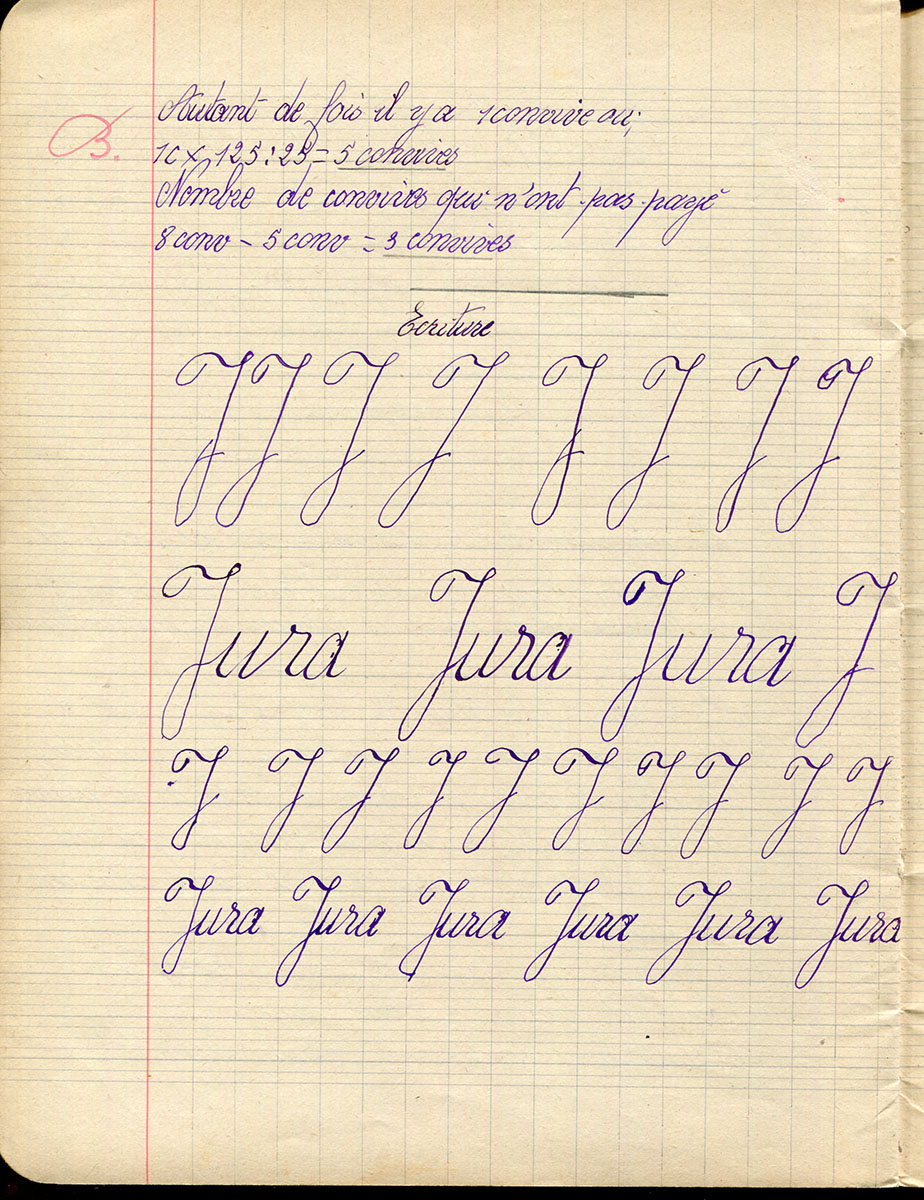 Autant de fois il y a 1 convive ou;
B.
1c × 125 : 25 = 5 convives
Nombre de convives qui n'ont pas payé
8 conv - 5 conv = 3 convives
Ecriture
J J J J J J J J
Jura Jura Jura J
J J J J J J J J J J
Jura Jura Jura Jura Jura Jura